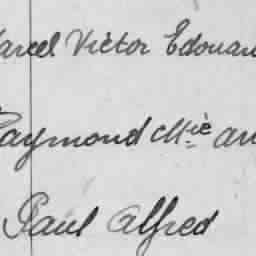 Marcel Victor Edouard
Raymond Mie an
Paul Alfred